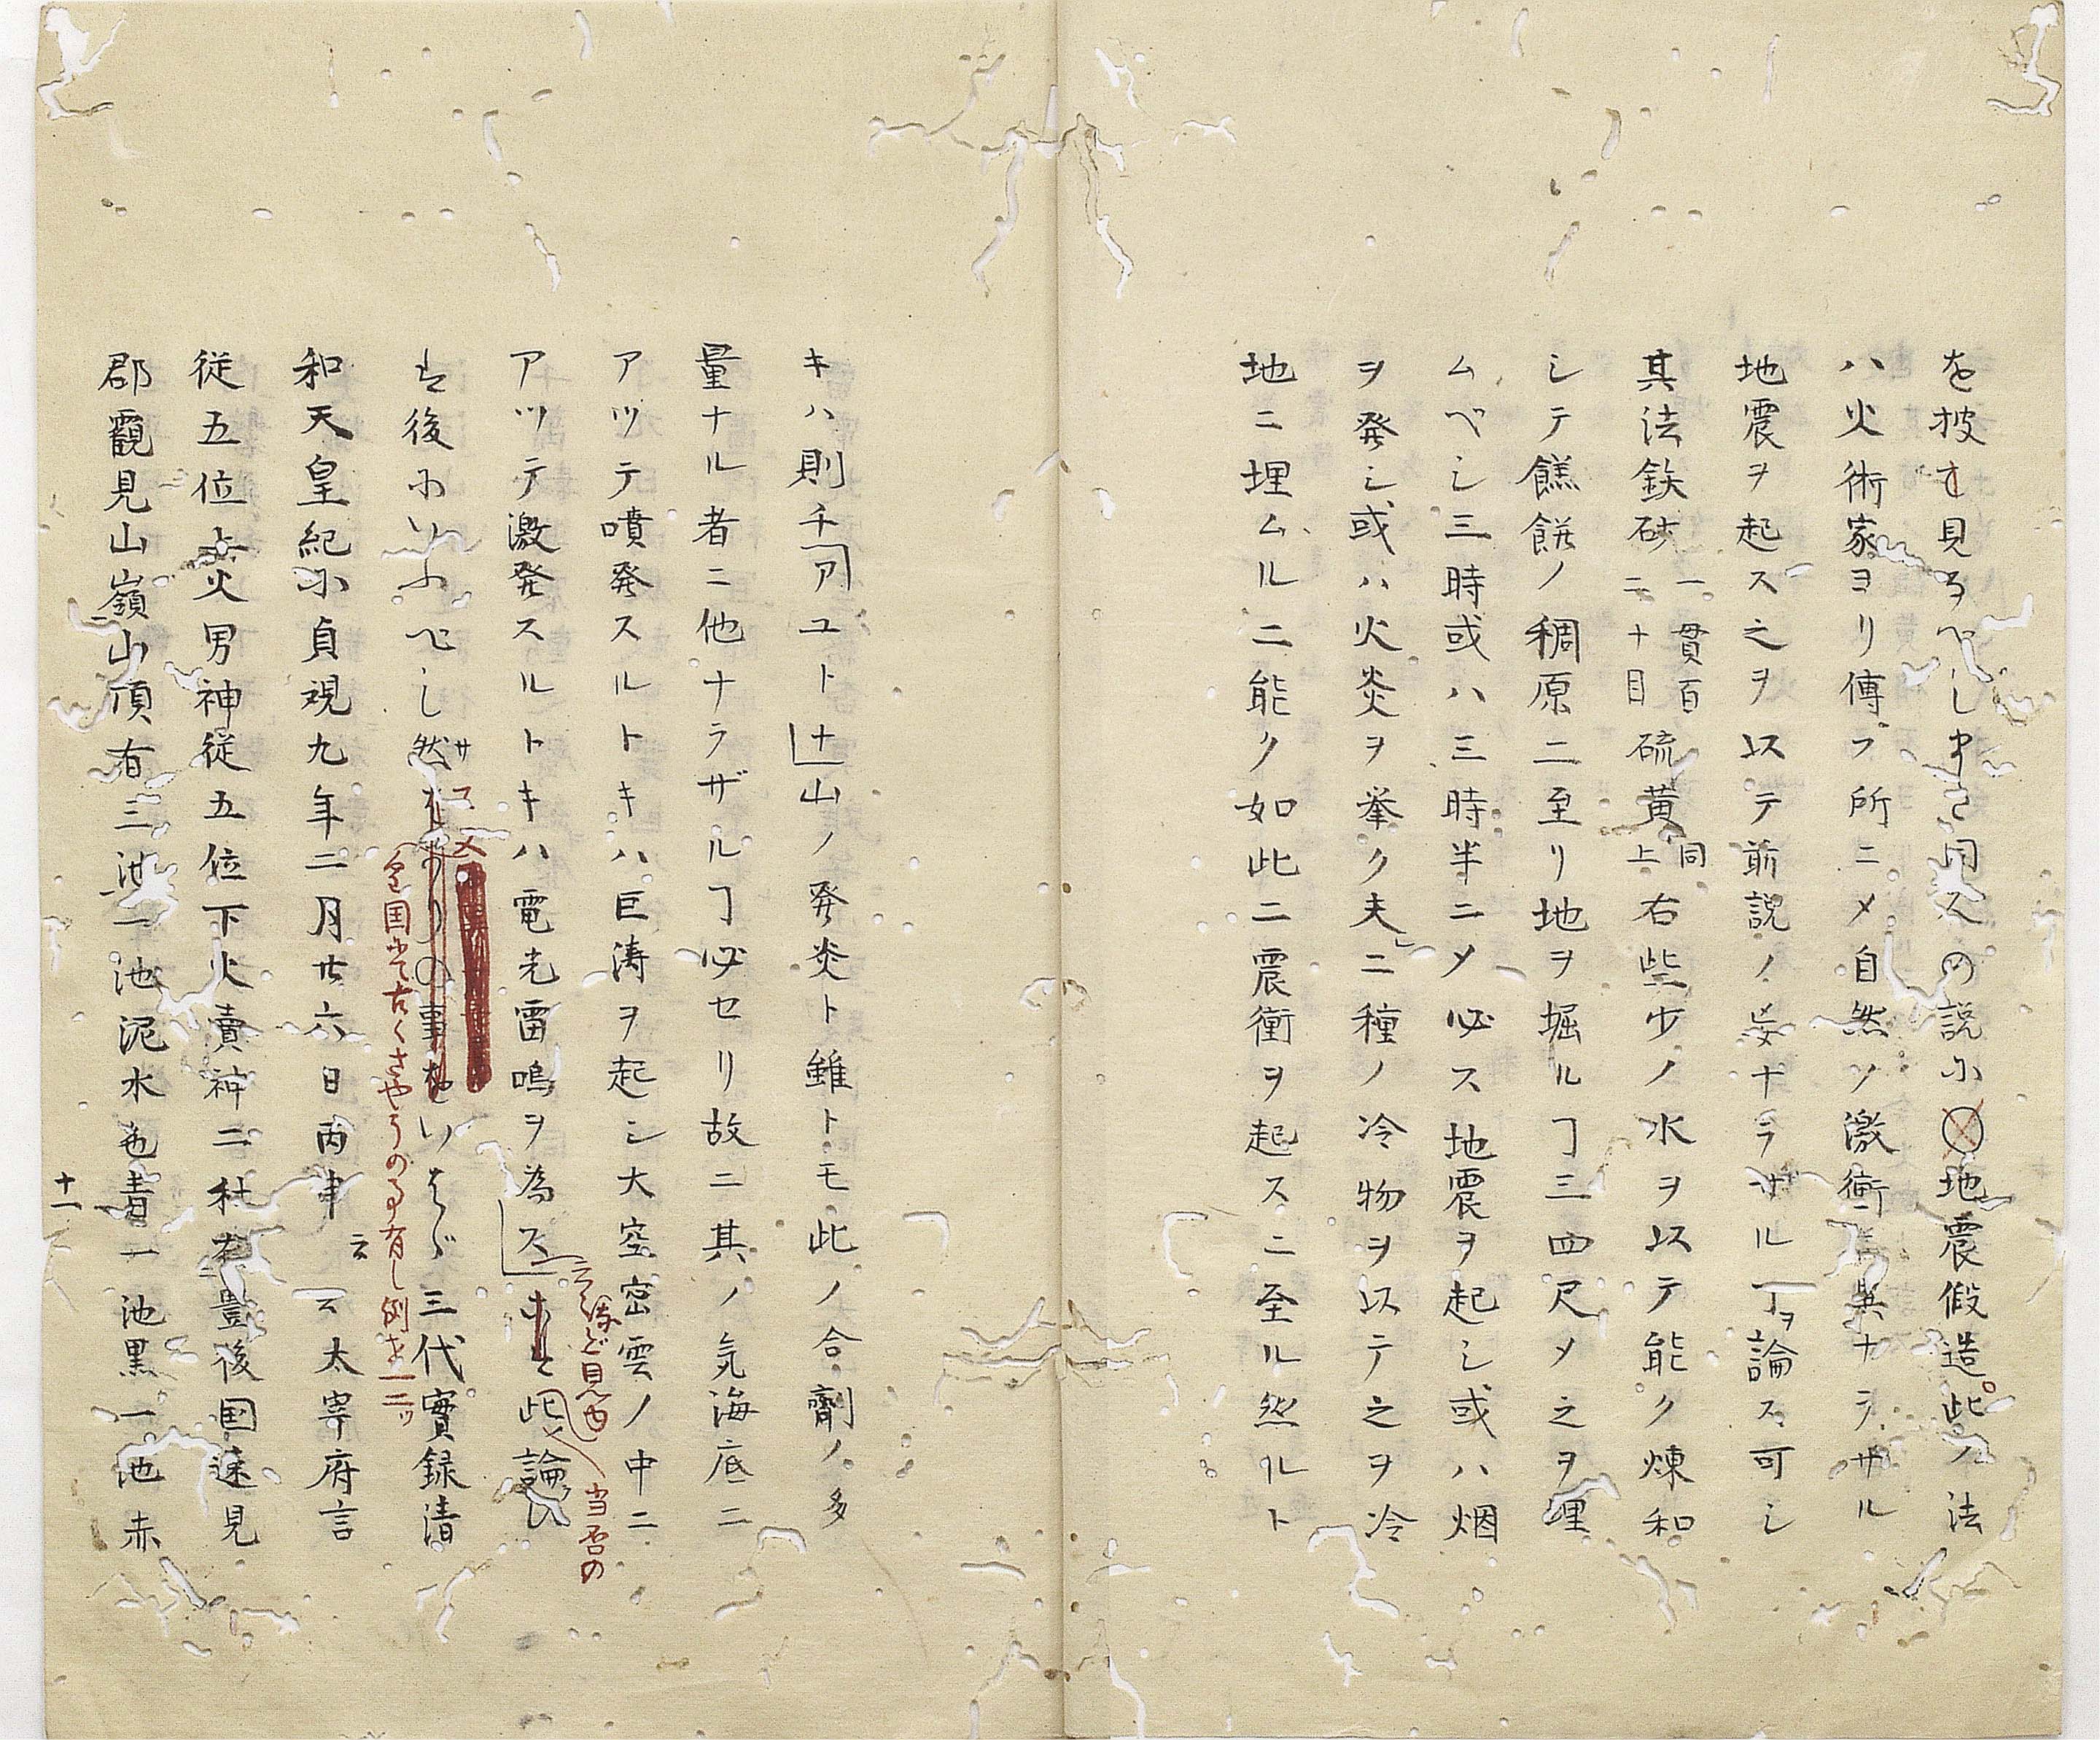 を披き見るべし申さ同人の説に地震假造此ノ法
ハ火術家ヨリ傳フ所ニメ自然ノ激衝ニ異ナラザル
地震ヲ起ス之ヲ以テ前説ノ妄ナラザルヿヲ論ス可シ
其法鉄砂一貫百二十目硫黄同上右些少ノ水ヲ以テ能ク煉和
シテ餻餅ノ稠原ニ至リ地ヲ堀ルヿ三四尺メ之ヲ埋
ムベシ三時或ハ三時半ニメ必ス地震ヲ起シ或ハ烟
ヲ発シ或ハ火炎ヲ挙ク夫ニ種ノ冷物ヲ以テ之ヲ冷
地ニ埋ムルニ能ク如此ニ震衝ヲ起スニ至ル然ルト
キハ則千アユトナ山ノ発炎ト雖トモ此ノ合劑ノ多
量ナル者ニ他ナラザルヿ必セリ故ニ其ノ気海底ニ
アツテ噴発スルトキハ巨涛ヲ起シ大空密雲ノ中ニ
アツテ激発スルトキハ電光雷鳴ヲ為ス此論
云々など見ゆ
当否の
は後にいふべし然の事をいはゞ三代實録清
サコ
皇国にて古くさやうの事有し例を一二ッ
和天皇紀に貞観九年二月廿六日丙申云云太宰府言
従五位上火男神従五位下火賣神二社在豊後国速見
郡鶴見山嶺山頂有三池一池泥水色青一池黒一池赤
十一